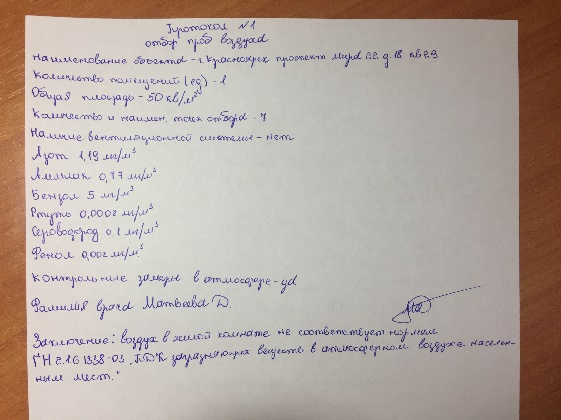 Протокол №1
отбор проб воздуха
Наименование объекта - г. Красноярск проспект Мира д. 18 кв 29
Количество помещений (ед) - 1
Общая площадь - 50 кв/м²
Количество и наимен. точек отбора - 4
Наличие вентиляционной системы - нет
Азот 1,19 мг/м³
Аммиак 0,77 мг/м³
Бензол 5 мг/м³
Ртуть 0,0002 мг/м³
Сероводород 0,1 мг/м³
Фенол 0,002 мг/м³
Контрольные замеры в атмосфере - да
Фамилия врача Матвеева Д.
Заключение: воздух в жилой комнате не соответствует нормам
ГН 2.1.6 1338-03 „ПДК загрязняющих веществ в атмосферном воздухе населен-
ным мест."